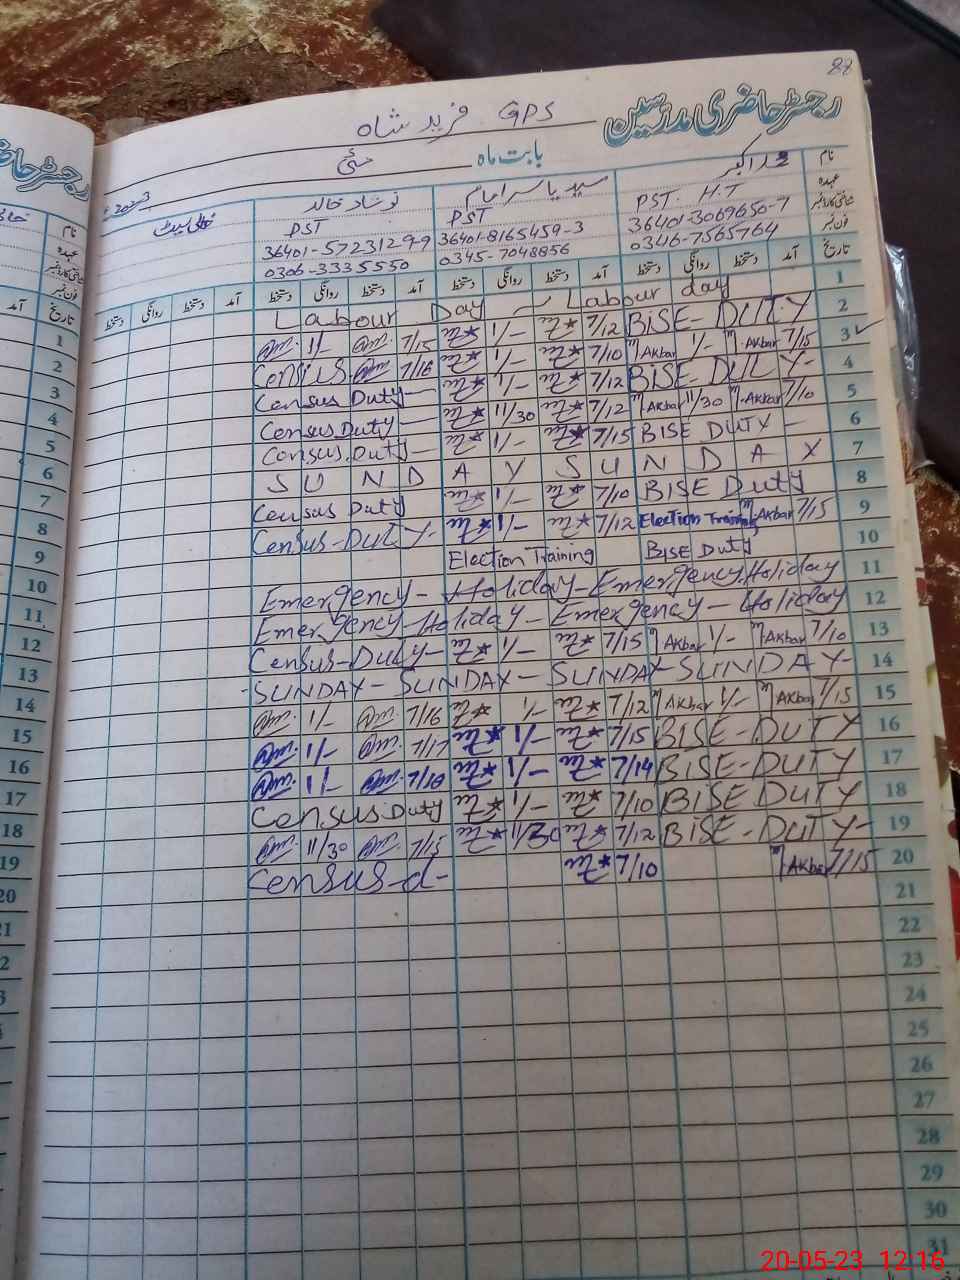 88
رجسٹر حاضری مدرسین
GPS فرید شاہ
بابت ماہ مئی 2023
نام اکبر سید یاسر امام نوشاد خالد خالی سیٹ
عہدہ PST. H.T PST PST
شناختی کارڈ نمبر 36401-3069650-7 36401-8165459-3 36401-5723129-9
فون نمبر 0346-7565764 0345-7048856 0306-3335550
تاریخ آمد دستخط روانگی دستخط آمد دستخط روانگی دستخط آمد دستخط روانگی دستخط آمد دستخط روانگی دستخط
Labour Day ~ Labour day 1
1/- 7/15 1/- 7/12 BISE-DUTY 2
Census 7/16 1/- 7/10 M Akbar 1/- M Akbar 7/15 3
Census Duty- 1/- 7/12 BISE-DUTY 4
Census Duty- 11/30 7/12 M Akbar 11/30 M Akbar 7/10 5
Census Duty- 1/- 7/15 BISE DUTY - 6
S U N D A Y S U N D A Y 7
Census Duty 1/- 7/10 BISE Duty 8
Census-Duty- 1/- 7/12 Election Training M Akbar 7/15 9
Election Training BISE Duty 10
Emergency-Holiday-Emergency.Holiday 11
Emergency-Holiday-Emergency-Holiday 12
Census-Duty- 1/- 7/15 M Akbar 1/- M Akbar 7/10 13
-SUNDAY-SUNDAY-SUNDAY-SUNDAY- 14
1/- 7/16 1/- 7/12 M Akbar 1/- M Akbar 7/15 15
1/- 7/17 1/- 7/15 BISE-DUTY 16
1/- 7/10 1/- 7/14 BISE-DUTY 17
Census Duty 1/- 7/10 BISE DUTY 18
11/30 7/15 11/30 7/12 BISE-DUTY- 19
Census-d- 7/10 M Akbar 7/15 20
21
22
23
24
25
26
27
28
29
30
31
20-05-23 12:16